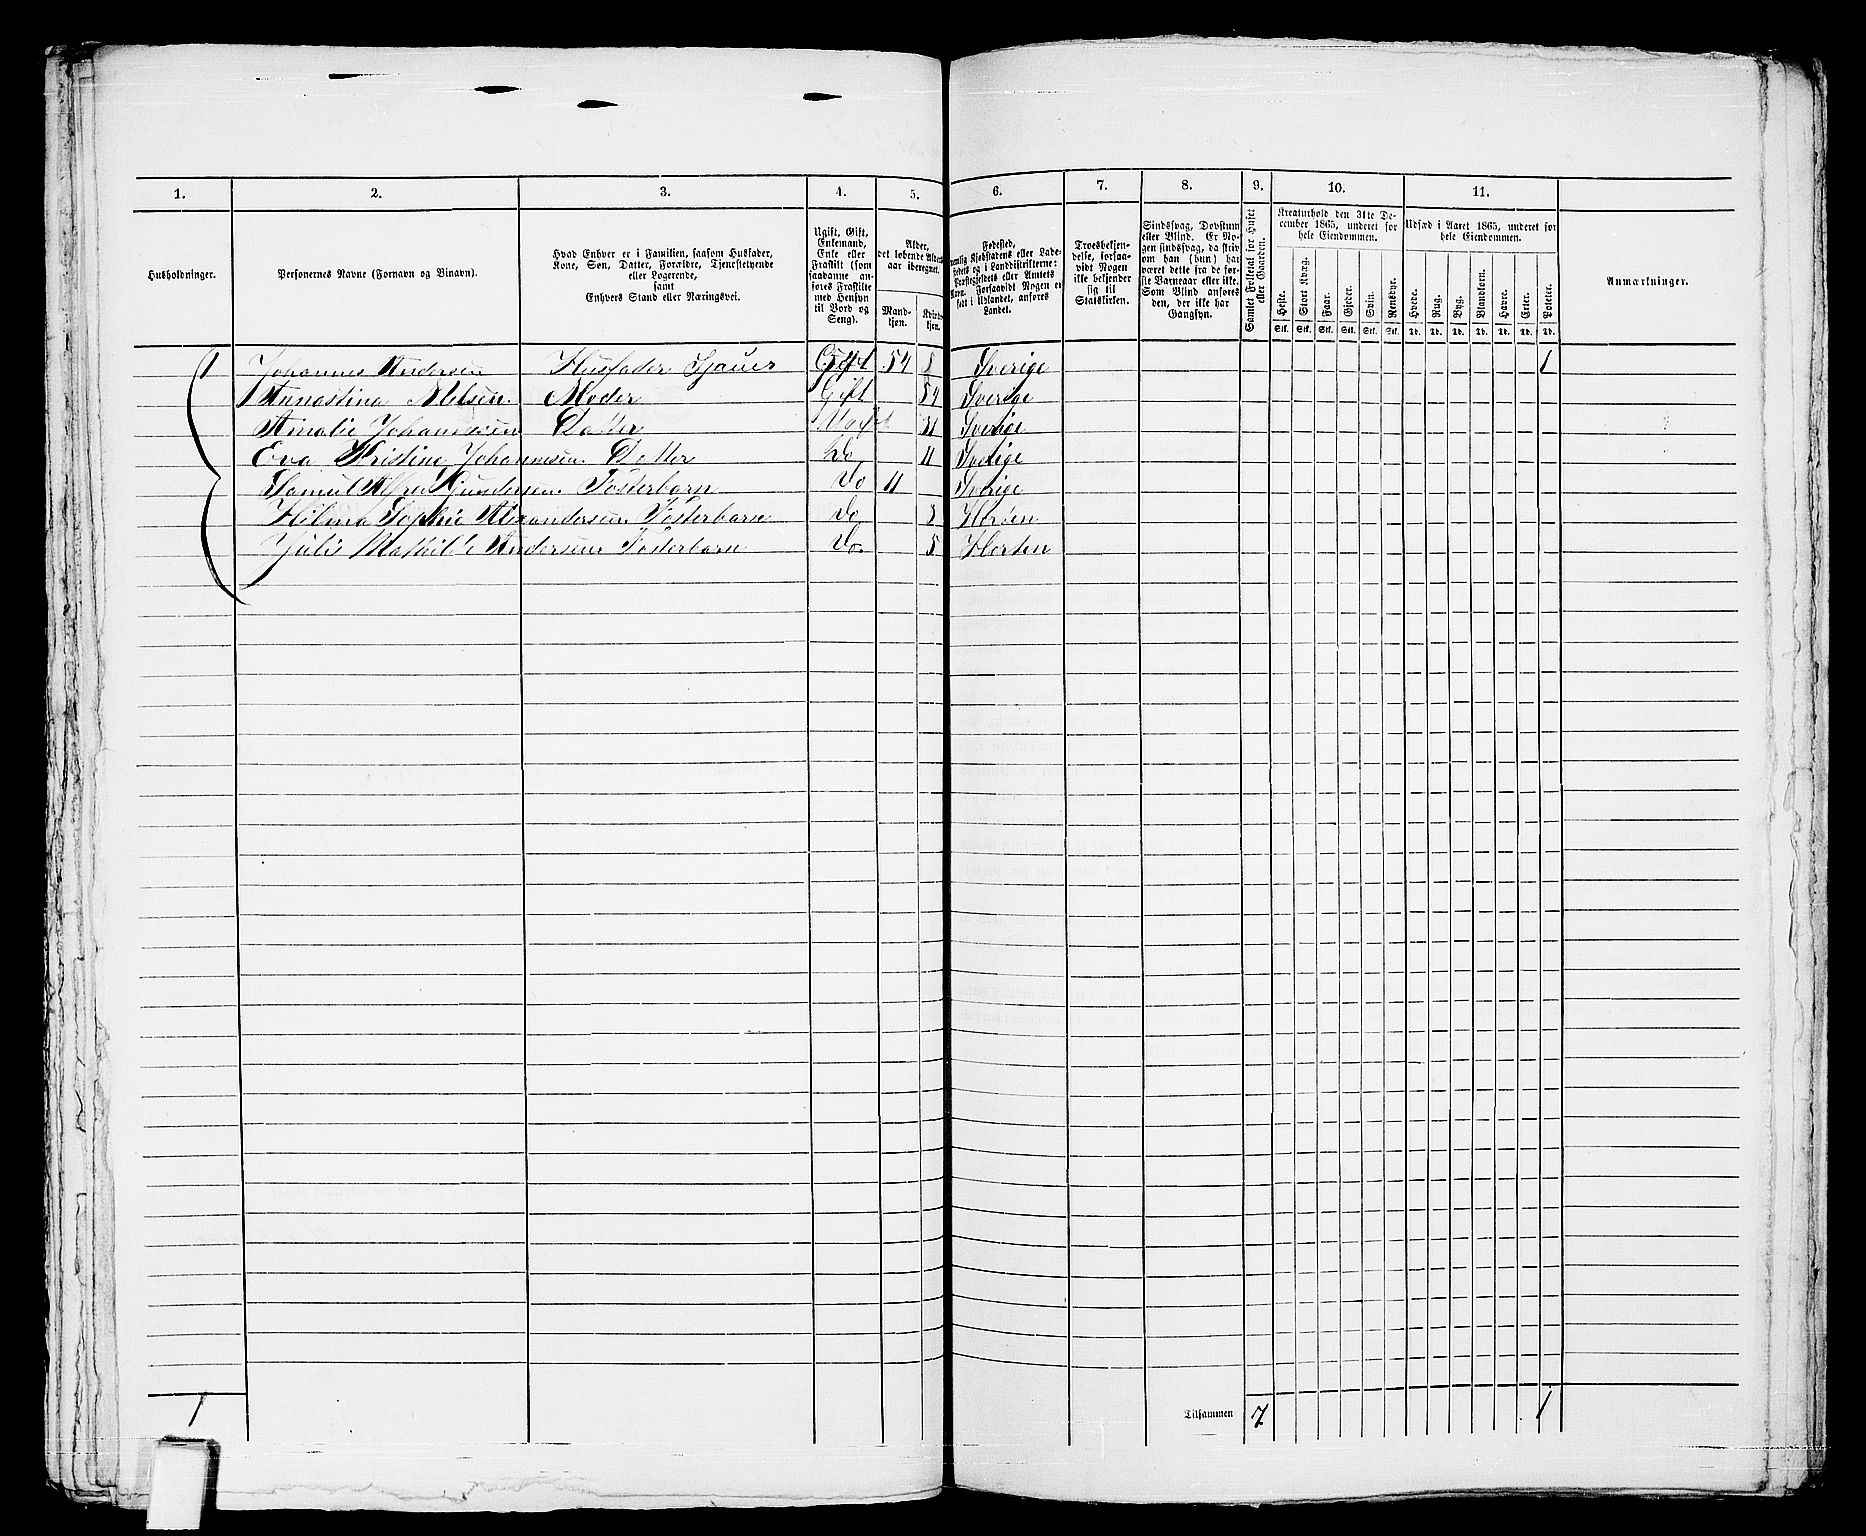 1. 2. 3. 4. 5. 6. 7. 8. 9. 10. 11.
Husholdninger.
Personernes Navne (Fornavn og Binavn).
Hvad Enhver er i Familien, saasom Husfader,
Kone, Søn, Datter, Forældre, Tjenestetyende
eller Logerende,
samt
Enhvers Stand eller Næringsvei.
Ugift, Gift,
Enkemand,
Enke eller
Fraskilt (som
saadanne an-
føres Fraskilte
med Hensyn
til Bord og
Seng).
Alder,
det løbende Alders-
aar iberegnet.
Mand-
kjøn.
Kvinde-
kjøn.
Fødested,
nemlig Kjøbstadens eller Lade-
stedets og i Landdistrikterne:
Præstegjældets eller Amtets
Navn. Forsaavidt Nogen er
født i Udlandet, anføres
Landet.
Troesbekjen-
delse, forsaa-
vidt Nogen
ikke bekjender
sig til
Statskirken.
Sindssvag, Døvstum
eller Blind. Er No-
gen sindssvag, da skriv
om han (hun) har
været dette fra de før-
ste Barneaar eller ikke.
Som Blind anføres
den, der ikke har
Gangsyn.
Samlet Folketal for Huset
eller Gaarden.
Kreaturhold den 31te De-
cember 1865, underet for
hele Eiendommen.
Heste. Stort Kvæg. Faar. Gjeder. Sviin. Rensdyr.
Stk. Stk. Stk. Stk. Stk. Stk.
Udsæd i Aaret 1865, underet for
hele Eiendommen.
Hvede. Rug. Byg. Blandkorn. Havre. Erter. Poteter.
Td. Td. Td. Td. Td. Td. Td.
Anmærkninger.
1 Johannes Andersen Husfader Sjauer Gift 54 Sverige 1
Annastina Nilsen. Moder Gift 54 Sverige
Amalie Johannessen Datter Ugift 21 Sverige
Eva Kristine Johannesen. Datter Do 11 Sverige
Samuel Alfred Gundersen. Fosterbarn Do 11 Sverige
Hilma Sophie Alexandersen. Fosterbarn Do 3 Horten
Julie Mathilde Andersen. Fosterbarn Do. 5 Horten
1 Tilsammen 7 1